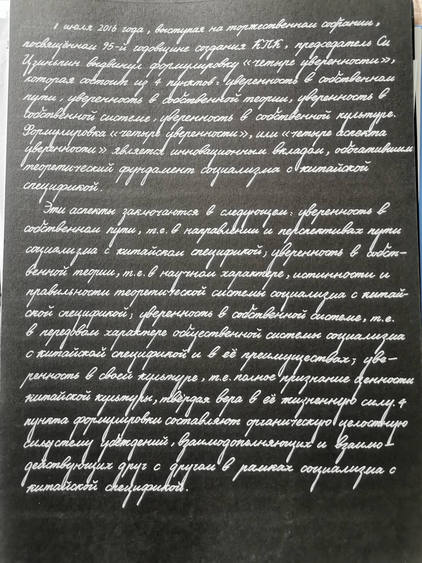 1 июля 2016 года, выступая на торжественном собрании,
посвящённом 95-й годовщине создания КПК, председатель Си
Цзиньпин выдвинул формулировку «четыре уверенности»,
которая состоит из 4 пунктов: уверенность в собственном
пути, уверенность в собственной теории, уверенность в
собственной системе, уверенность в собственной культуре.
Формулировка «четыре уверенности», или «четыре аспекта
уверенности» является инновационным вкладом, обогатившим
теоретический фундамент социализма с китайской
спецификой.
Эти аспекты заключаются в следующем: уверенность в
собственном пути, т.е. в направлении и перспективах пути
социализма с китайской спецификой; уверенность в собст-
венной теории, т.е. в научном характере, истинности и
правильности теоретической системы социализма с китай-
ской спецификой; уверенность в собственной системе, т.е.
в передовом характере общественной системы социализма
с китайской спецификой и в её преимуществах; уве-
ренность в своей культуре, т.е. полное признание ценности
китайской культуры, твёрдая вера в её жизненную силу. 4
пункта формулировки составляют органическую целостную
систему убеждений, взаимодополняющих и взаимо-
действующих друг с другом в рамках социализма с
китайской спецификой.